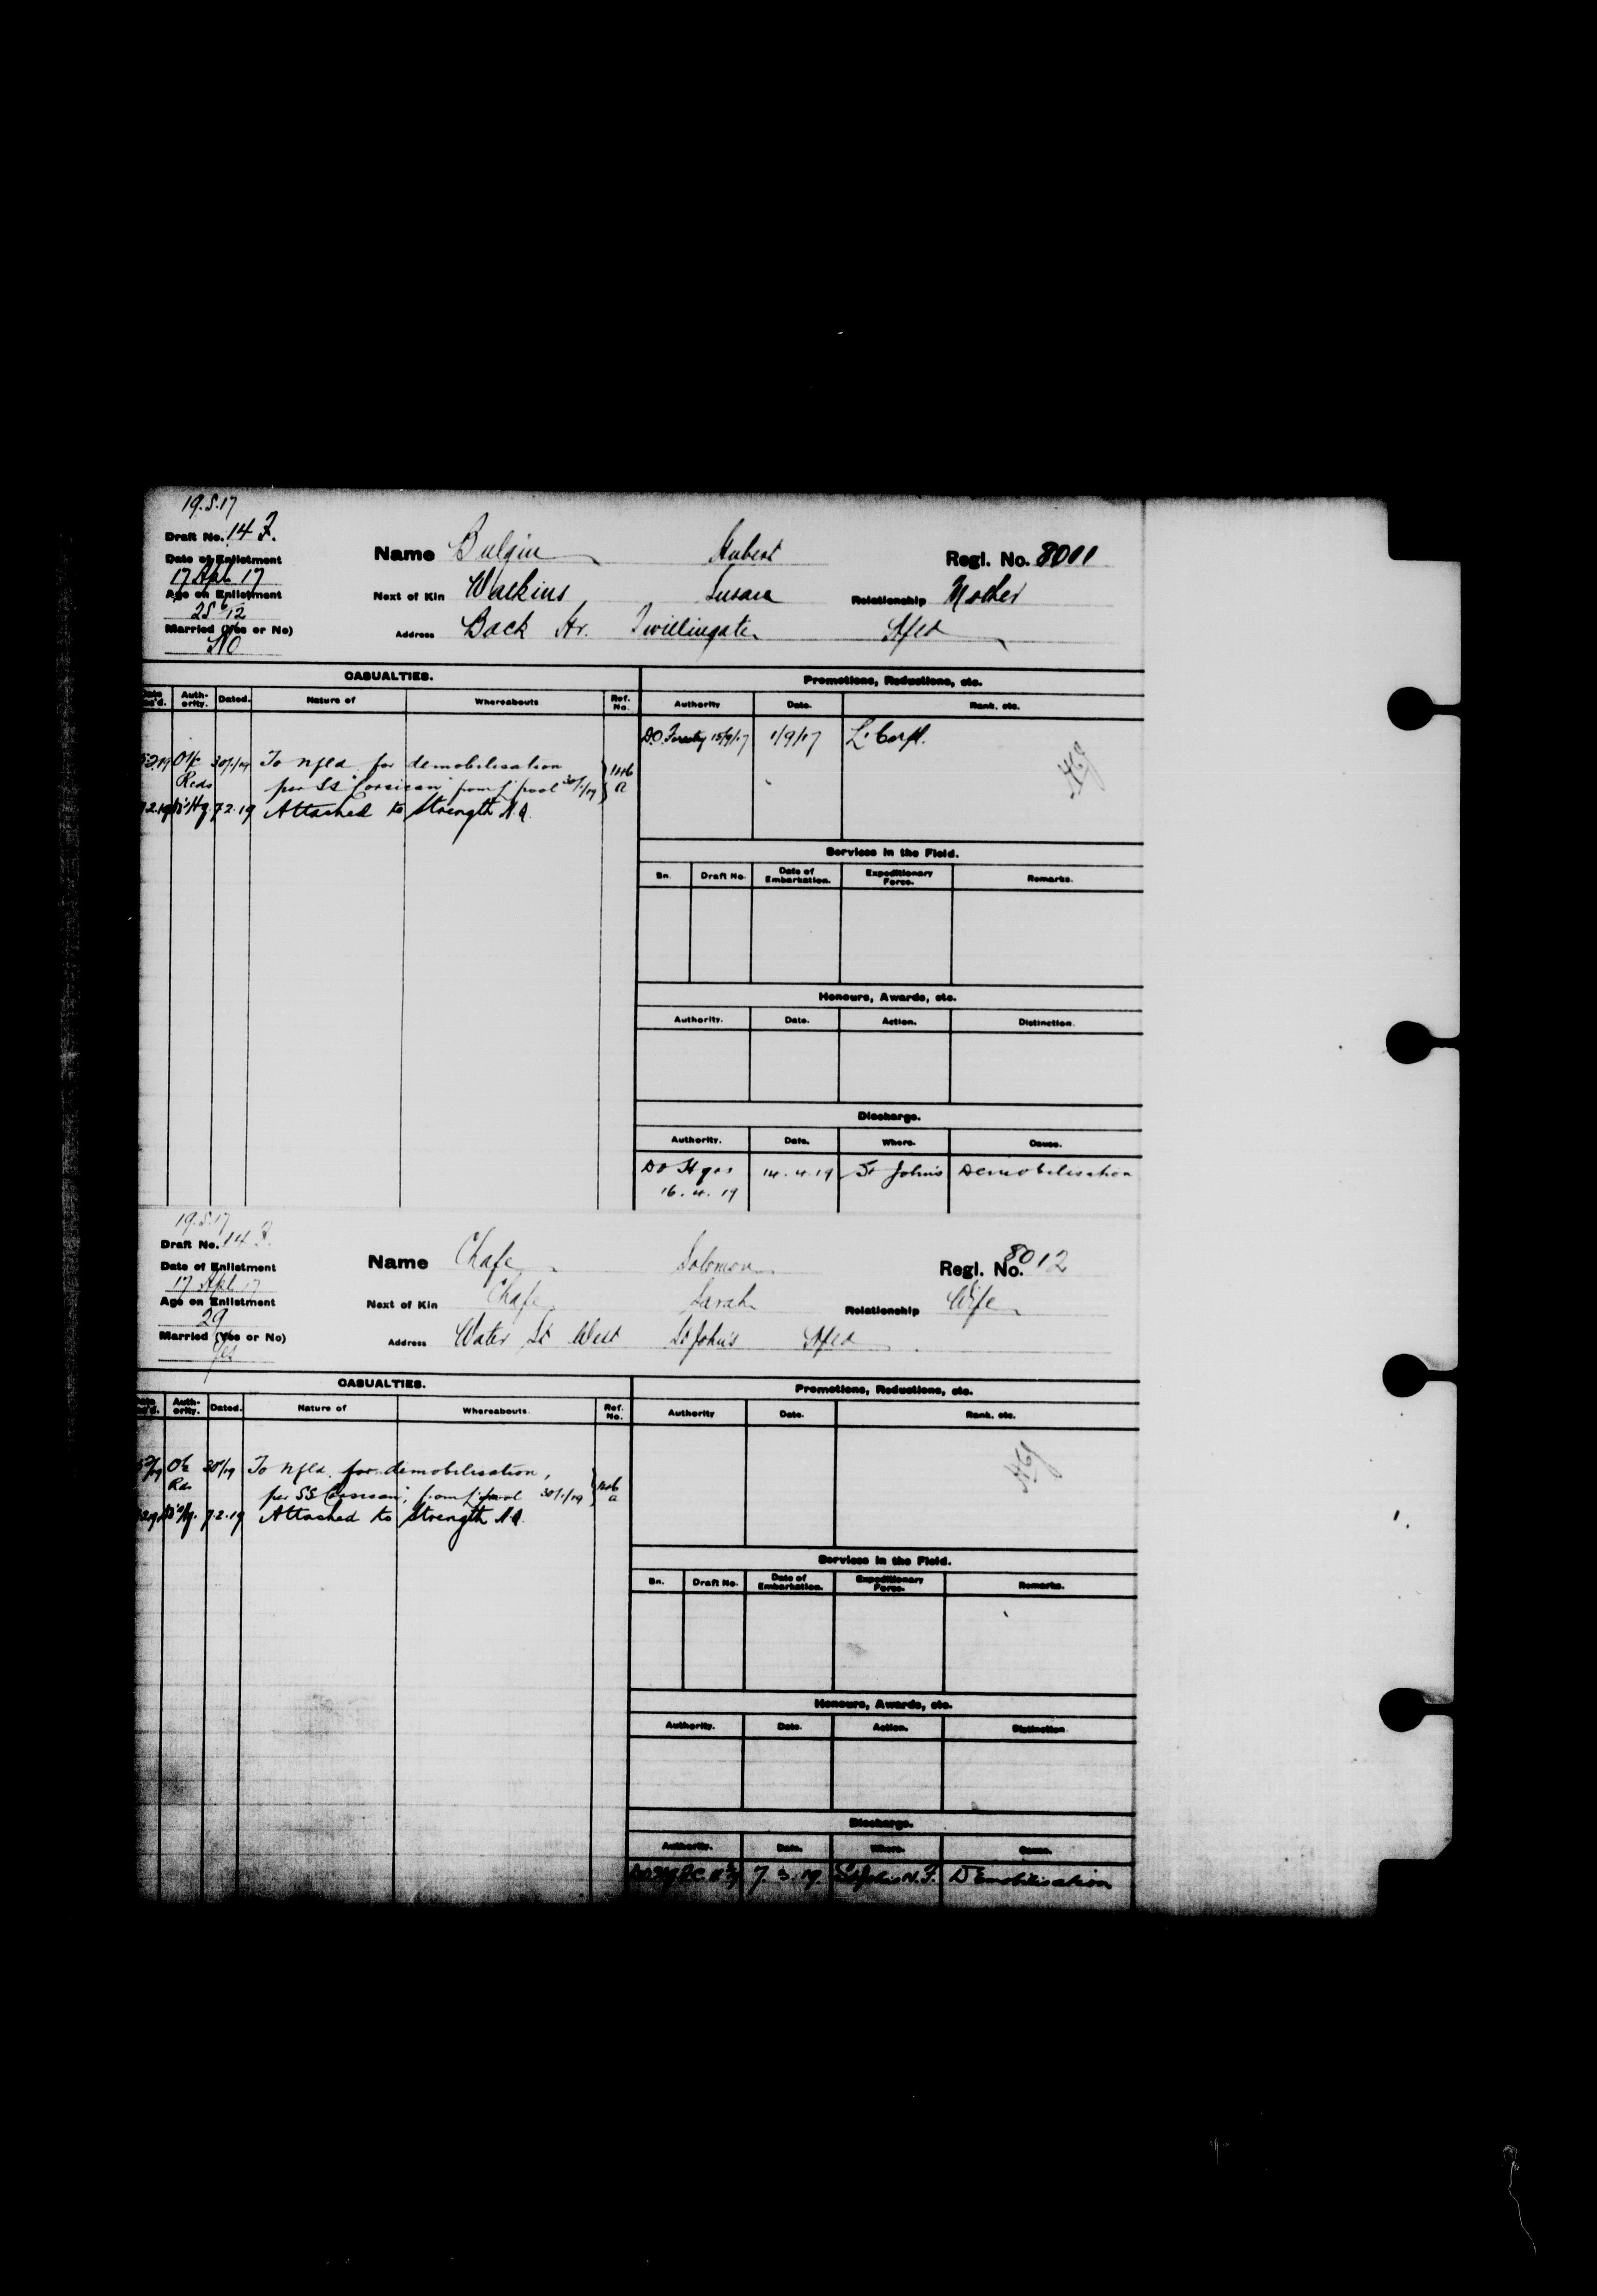 19.5.17
Draft No. 14 F.
Name Bulgin Hubert Regl. No. 8011
Date of Enlistment
17 Apl 17
Next of Kin Watkins, Susara Relationship Mother
Age on Enlistment
25 6/12
Address Back Hr. Twillingate Nfld
Married (Yes or No)
No
CASUALTIES. Promotions, Reductions, etc.
Date Rec'd. Auth-ority. Dated. Nature of Whereabouts Ref. No. Authority Date. Rank, etc.
D.O. Forestry 15/9/17 1/9/17 L/Corpl.
O i/c Recds 30/1/19 To Nfld. for demobilisation
per SS "Corsican" from L'pool 30/1/19
7.2.19 Attached to Strength
Services in the Field.
Bn. Draft No. Date of Embarkation. Expeditionary Force. Remarks.
Honours, Awards, etc.
Authority. Date. Action. Distinction.
Discharge.
Authority. Date. Where. Cause.
DO Hqrs 14.4.19 St John's Demobilisation
16.4.19
19.5.17
Draft No. 14 F.
Name Chafe Solomon Regl. No. 8012
Date of Enlistment
17 Apl 17
Next of Kin Chafe Sarah Relationship Wife
Age on Enlistment
29
Address Water St West St John's Nfld
Married (Yes or No)
Yes
CASUALTIES. Promotions, Reductions, etc.
Date Rec'd. Auth-ority. Dated. Nature of Whereabouts. Ref. No. Authority Date. Rank, etc.
O i/c Rds 30/1/19 To Nfld. for demobilisation,
per SS "Corsican", from L'pool 30/1/19
7.2.19 Attached to Strength
Services in the Field.
Bn. Draft No. Date of Embarkation. Expeditionary Force. Remarks.
Honours, Awards, etc.
Authority. Date. Action. Distinction
Discharge.
Authority. Date. Where. Cause.
7.3.19 St John's N.F. Demobilisation